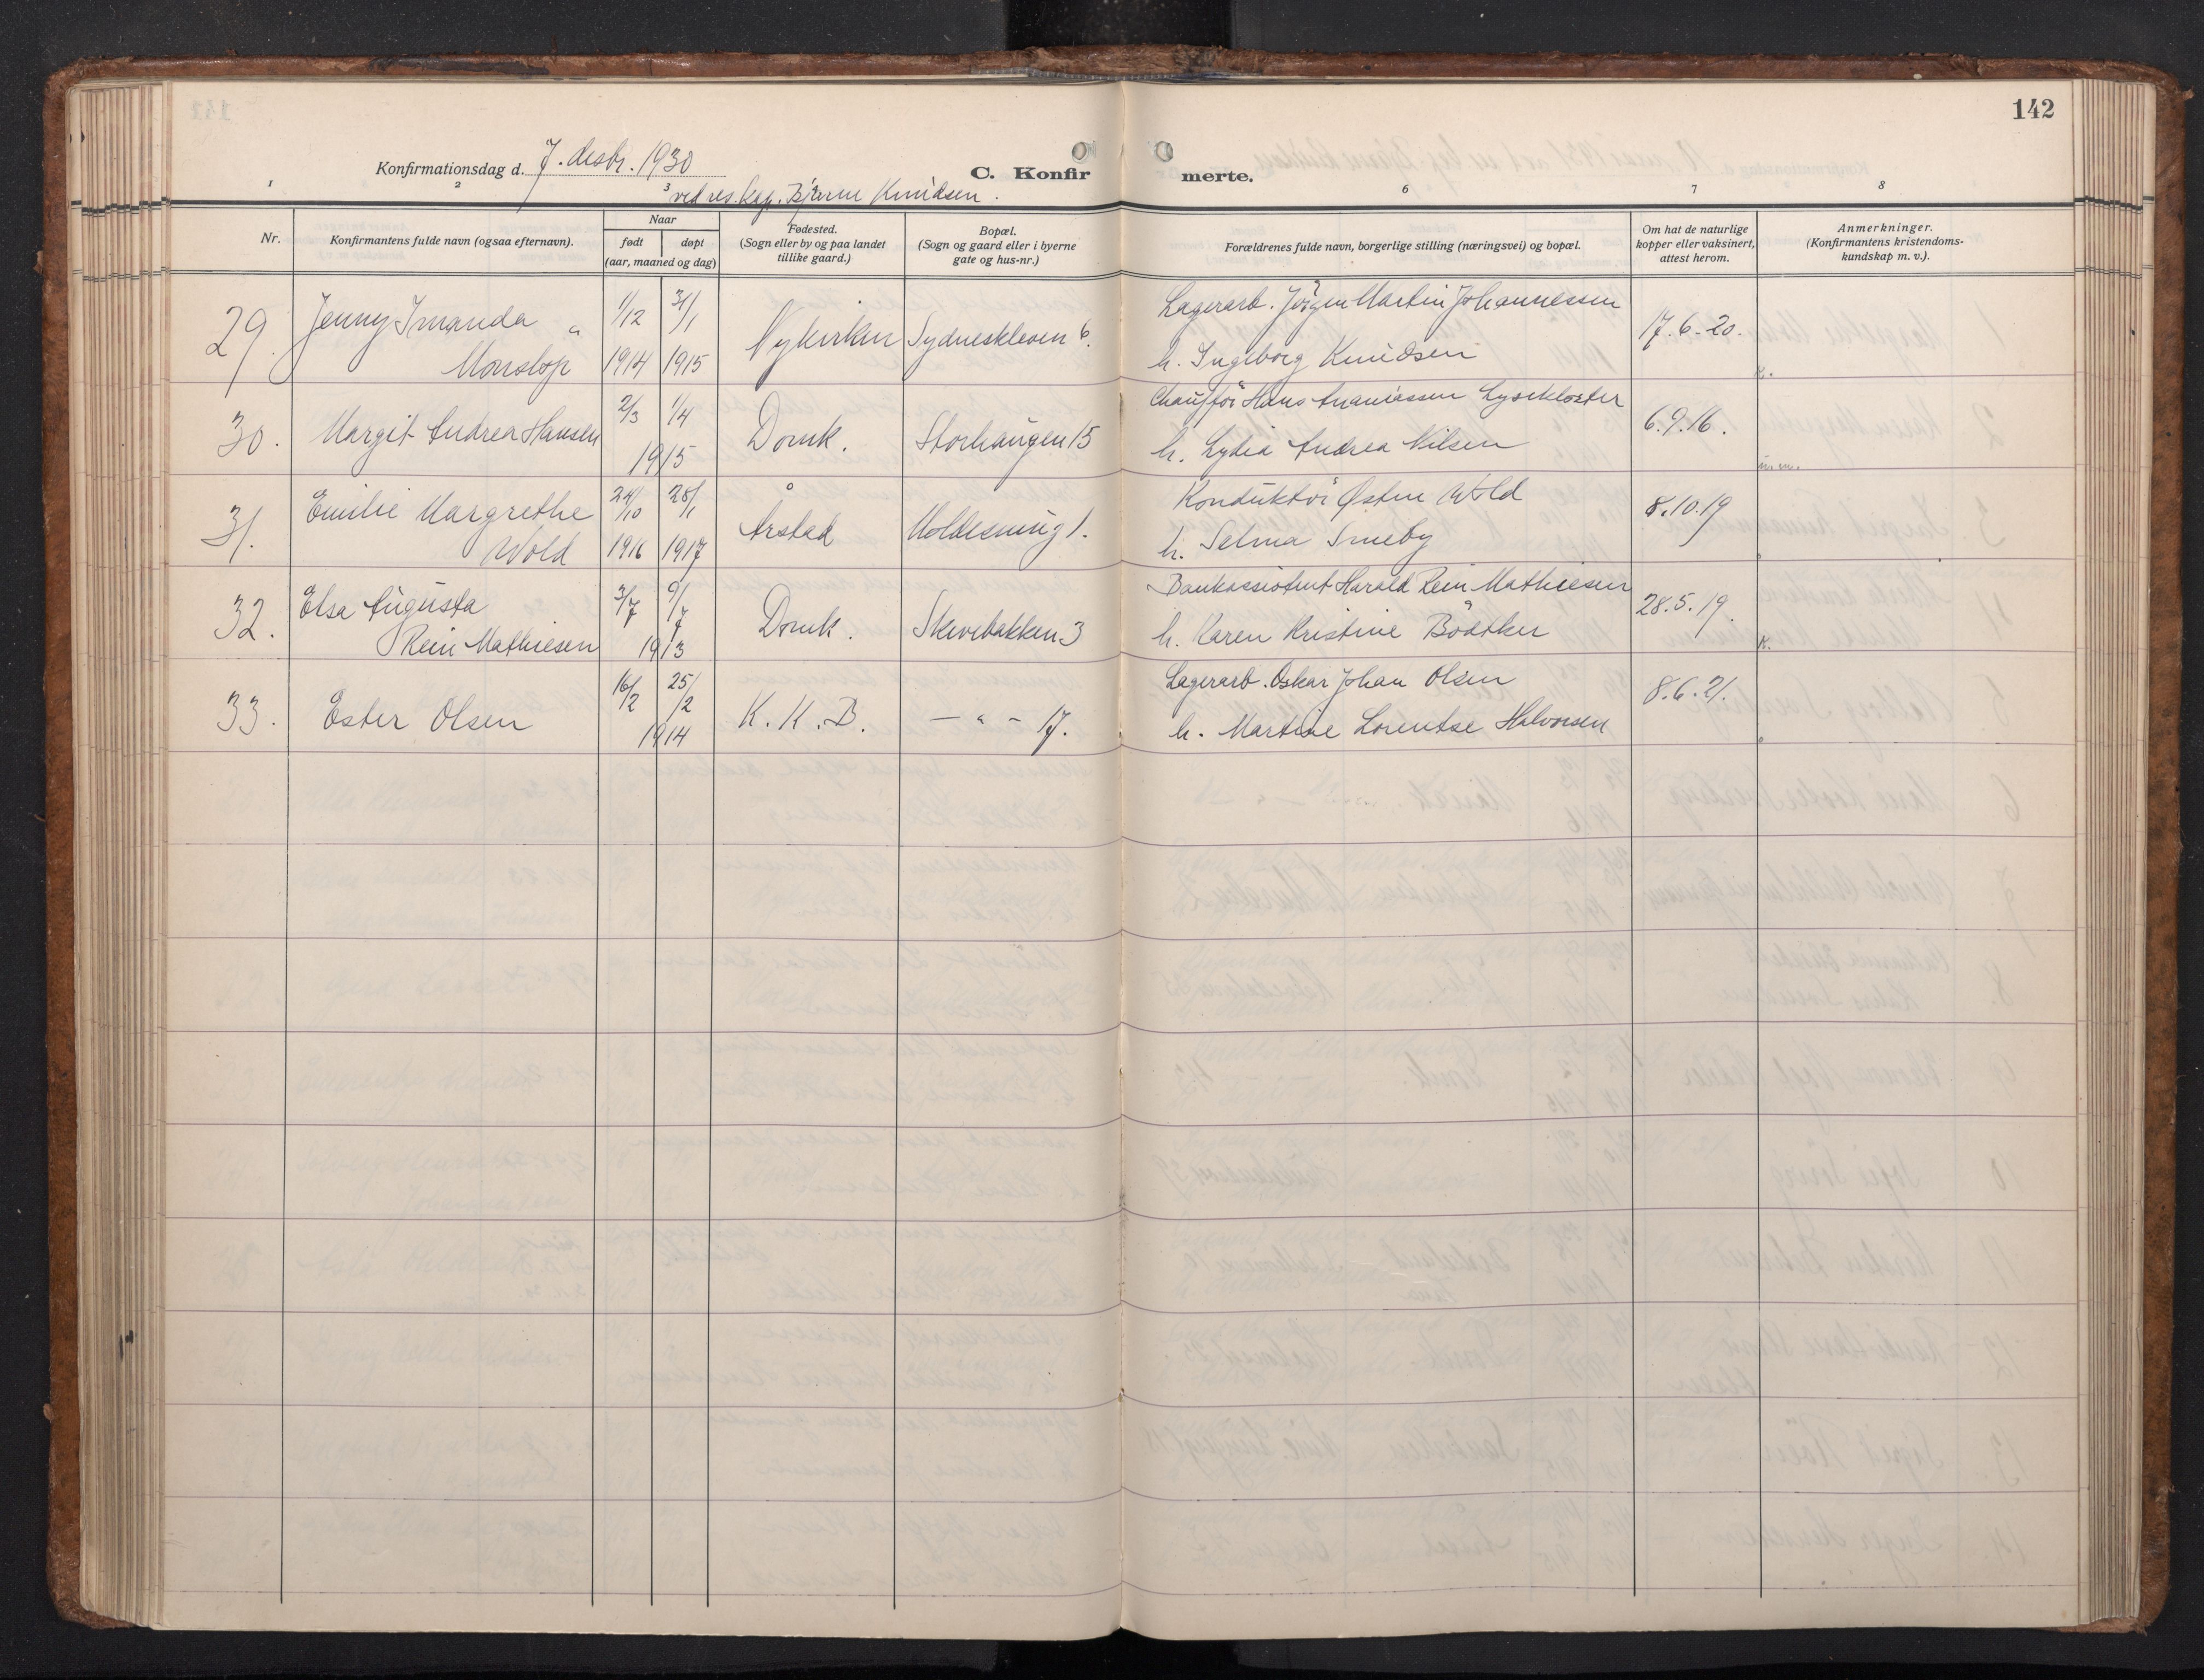 142
Konfirmationsdag d. 7. desbr. 1930
ved res. kap. Bjarne Knudsen.
C. Konfirmerte.
1 2 3 6 7 8
Nr.
Konfirmantens fulde navn (ogsaa efternavn).
Naar
født døpt
(aar, maaned og dag)
Fødested.
(Sogn eller by og paa landet
tillike gaard.)
Bopæl.
(Sogn og gaard eller i byerne
gate og hus-nr.)
Forældrenes fulde navn, borgerlige stilling (næringsvei) og bopæl.
Om hat de naturlige
kopper eller vaksinert,
attest herom.
Anmerkninger.
(Konfirmantens kristendoms-
kundskap m. v.).
29. Jenny Imanda " 1/12 31/1 Nykirken Sydneskleven 6. Lagerarb. Jörgen Martin Johannessen 17.6.20.
Monstop 1914 1915 h. Ingeborg Knudsen
30. Margit Andrea Hansen 2/3 1/4 Domk. Storhaugen 15 Chaufför Hans Ananiassen Lysekloster 6.9.16.
1915 h. Lydia Andrea Nilsen
31. Emilie Margrethe 24/10 28/1 Årstad Moldesmug 1. Konduktör Østen Wold 8.10.19
Wold 1916 1917 h. Selma Smeby
32. Elsa Augusta 3/7 9/7 Domk. Skivebakken 3 Bankassistent Harald Rein Mathiesen 28.5.19.
Rein Mathiesen 1913 h. Karen Kristine Bödtker K.
33. Ester Olsen 16/2 25/2 K. K. B. — " - 17. Lagerarb. Oskar Johan Olsen 8.6.21.
1914 h. Martine Lorentse Halvorsen